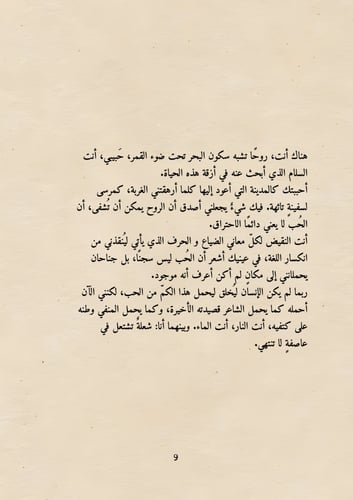 هناك أنت، روحًا تشبه سكون البحر تحت ضوء القمر، حَبيبي، أنت
السلام الذي أبحث عنه في أزقة هذه الحياة.
أحببتك كالمدينة التي أعود إليها كلما أرهقتني الغربة، كمرسى
لسفينةٍ تائهة. فيك شيءٌ يجعلني أصدق أن الروح يمكن أن تُشفى، أن
الحُب لا يعني دائمًا الاحتراق.
أنت النقيض لكلّ معاني الضياع و الحرف الذي يأتي ليُنقذني من
انكسار اللغة، في عينيك أشعر أن الحُب ليس سجنًا، بل جناحان
يحملانني إلى مكانٍ لم أكن أعرف أنه موجود.
ربما لم يكن الإنسان ليُخلق ليحمل هذا الكمّ من الحب، لكنني الآن
أحمله كما يحمل الشاعر قصيدته الأخيرة، وكما يحمل المنفي وطنه
على كتفيه، أنت النار، أنت الماء. وبينهما أنا: شعلةٌ تشتعل في
عاصفةٍ لا تنتهي.
9